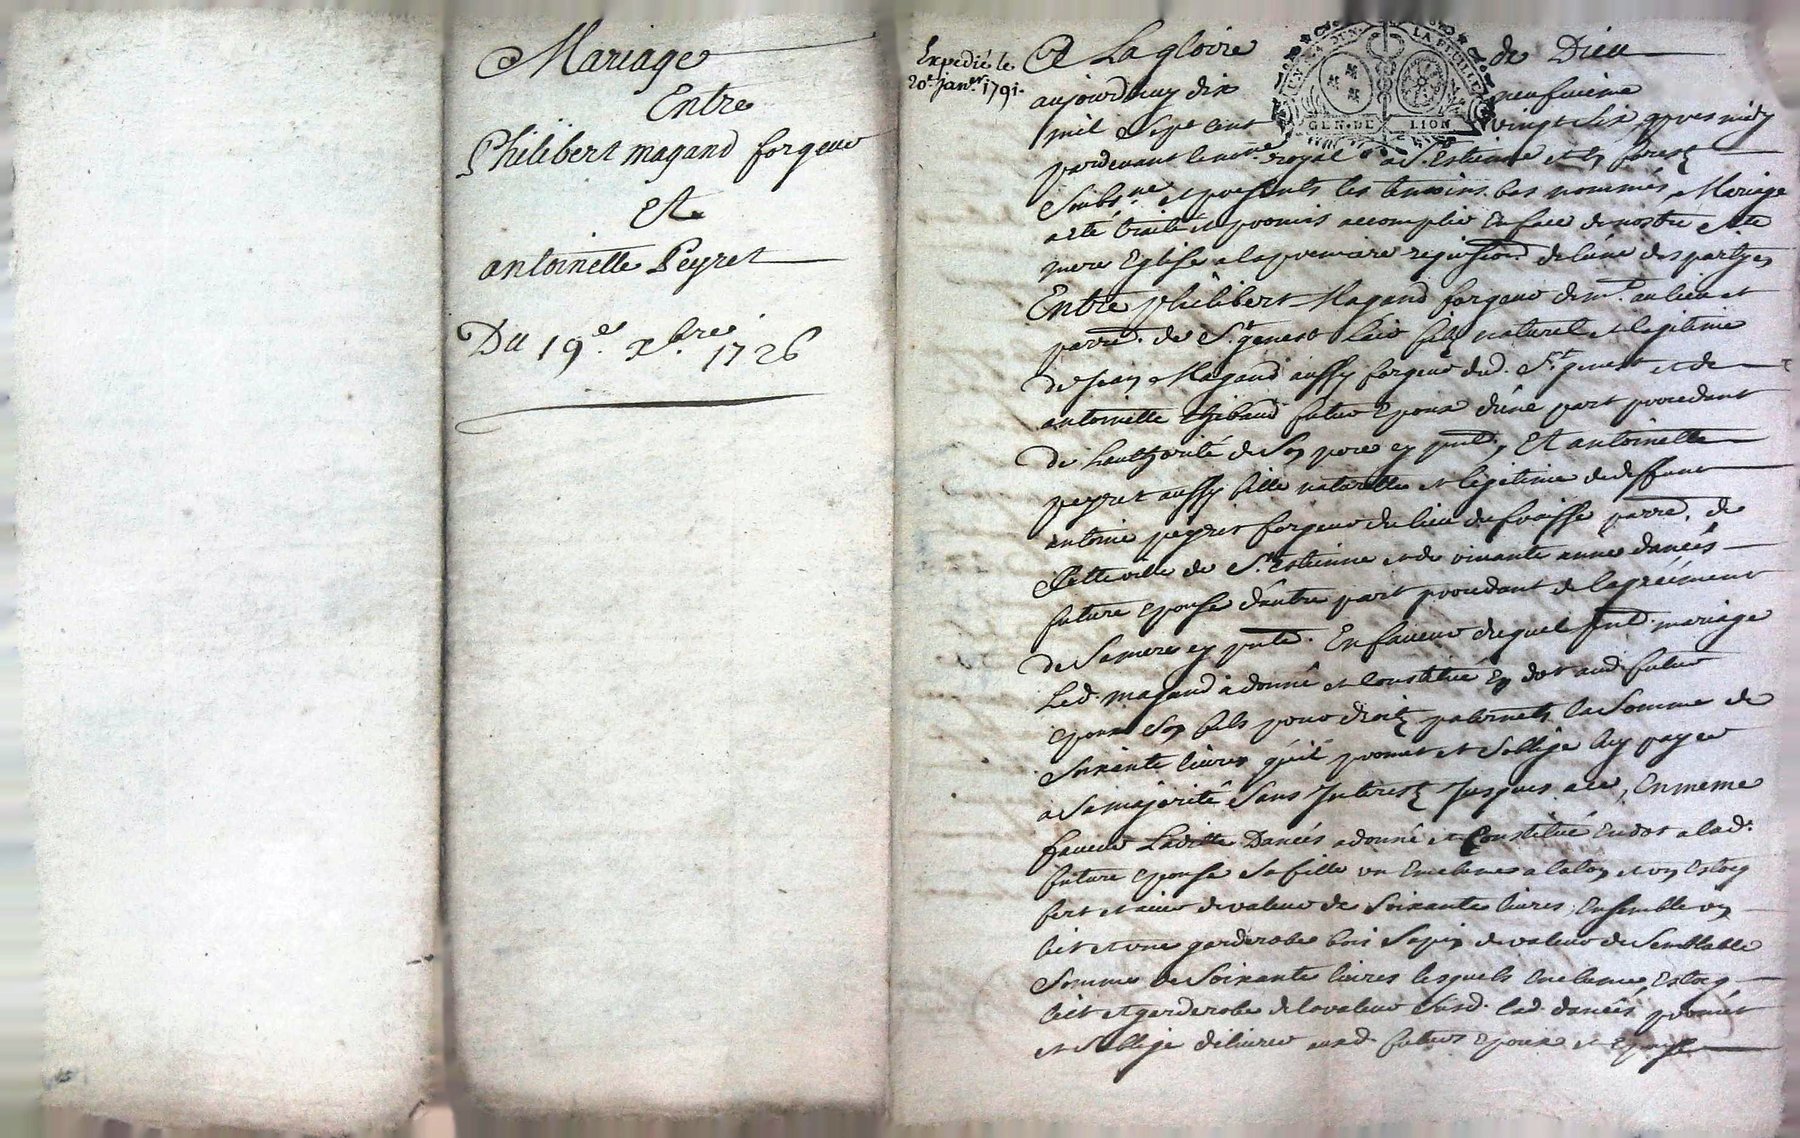 Mariage
Entre
Philibert magand forgeur
Et
antoinette Peyret
Du 19e. Xbre. 1726
Expedié le
20e. Janer. 1791.
A La gloire de Dieu
GEN. DE LION
aujourdhuy dix neufvieme
mil Sept cent vingt Six apres midy
pardevant le notre. royal a St. Estienne et en forest
Soubsne. et presents les temoins bas nommés, Mariage
a eté traité et promis accomplir En face de nostre Ste
mere Eglise a la premiere requisition de lune des partyes
Entre philibert Magand forgeur dem.t au lieu et
parre. de St. genest Leir fils naturel et legitime
de Jean Magand aussy forgeur dud. St. genest et de
antoinette thibaud futur Epoux dune part procedant
de Lauthorité de Son pere icy pnt., Et antoinette
peyret aussy fille naturelle et legitime de deffunt
antoine peyret forgeur du lieu du fraisse parre. de
Cette ville de St. Estienne et de vivante anne dancés
future epouse dautre part procedant de lagréément
de Sa mere icy pnte. En faveur duquel pnt. mariage
Led. magand a donné et Constitué En dot aud. futur
epoux Son fils pour droits paternels la Somme de
Soixante livres qu'il promet et Soblige luy payer
a Sa majorité Sans Interest Jusques a ce, En meme
faveur Laditte Dancés a donné et Constitué En dot a lad.
future epouse Sa fille un Enclume a talon et un Estoq
de valeur de Soixante livres, Ensemble un
lict et une garderobe bois Sapin de valeur de Semblable
Somme de Soixante livres lesquels Enclume, Estoq,
lict et garderobe de la valeur Susd. lad. dancés promet
et Soblige délivrer auxd. futurs Epoux et Epouse